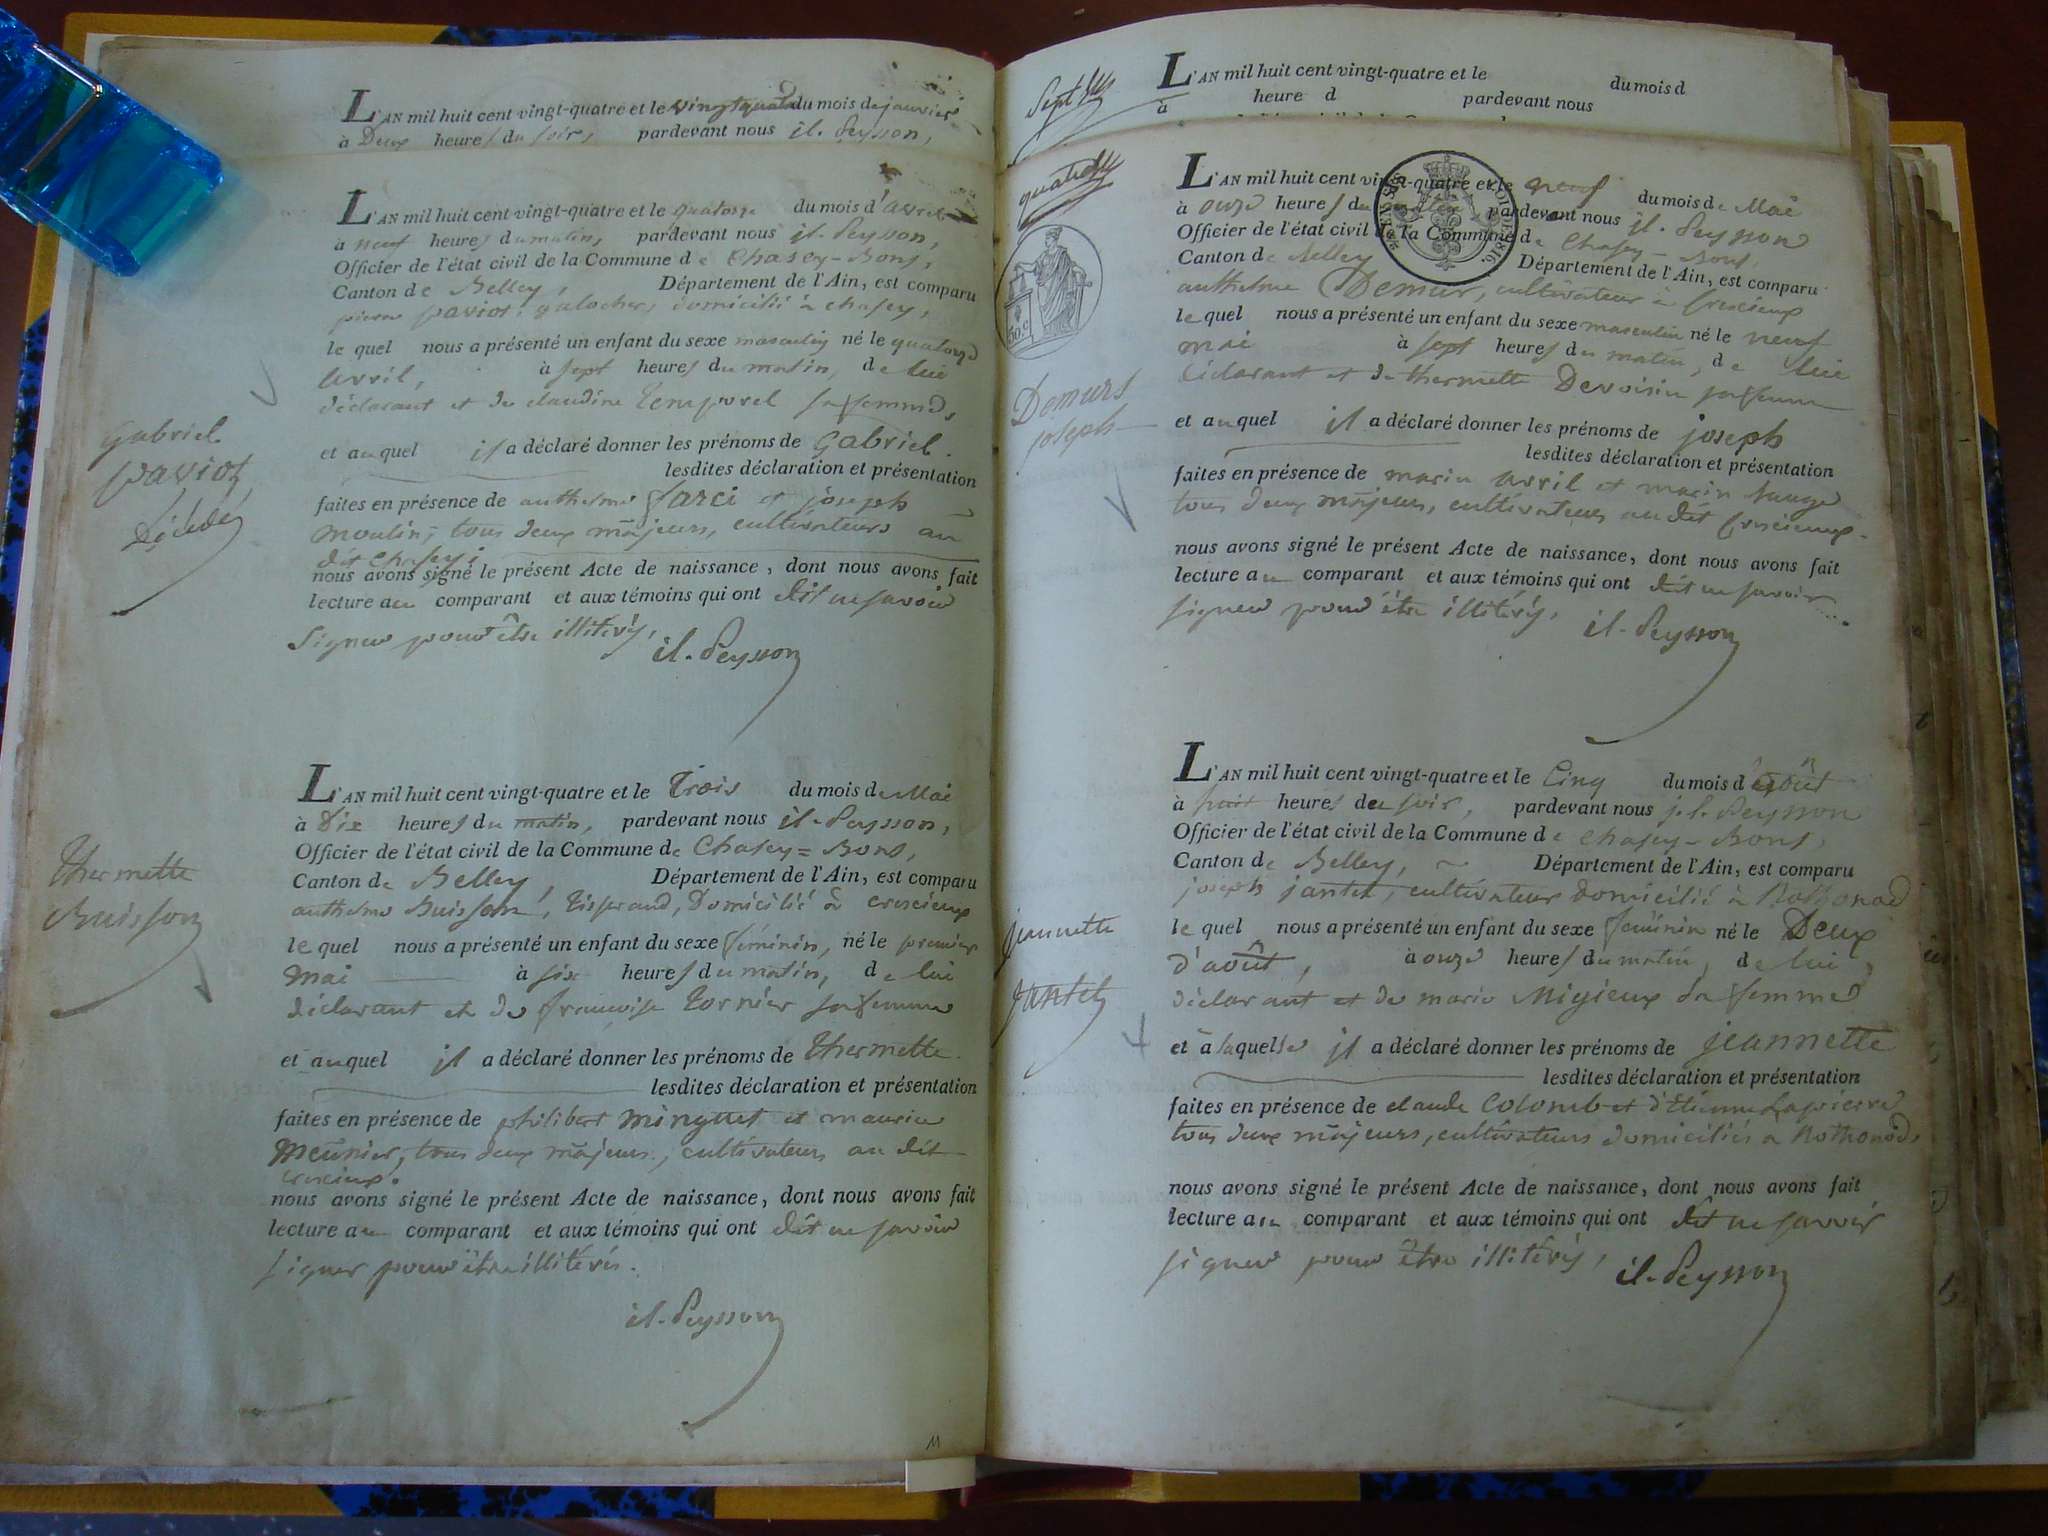 L'AN mil huit cent vingt-quatre et le vingt quatre du mois de janvier
à Deux heures du soir, pardevant nous j.l. Peysson,
L'AN mil huit cent vingt-quatre et le quatorze du mois d'avril
à neuf heures du matin, pardevant nous j.l. Peysson,
Officier de l'état civil de la Commune de Chasey-Bons,
Canton de Belley, Département de l'Ain, est comparu
pierre paviot, galocher, domicilié à chasey,
le quel nous a présenté un enfant du sexe masculin né le quatorze
avril, à sept heures du matin, de lui
déclarant et de claudine Temporel sa femme,
et au quel il a déclaré donner les prénoms de Gabriel.
lesdites déclaration et présentation
faites en présence de anthelme et joseph
moulin, tous deux majeurs, cultivateurs au
dit chasey;
nous avons signé le présent Acte de naissance, dont nous avons fait
lecture au comparant et aux témoins qui ont dit ne savoir
signer pour être illitérés,
j.l. Peysson
Gabriel
paviot
Décédé
L'AN mil huit cent vingt-quatre et le Trois du mois de Mai
à Dix heures du matin, pardevant nous j.l. Peysson,
Officier de l'état civil de la Commune de Chasey=Bons,
Canton de Belley, Département de l'Ain, est comparu
anthelme Buisson, Tisserand, Domicilié à crescieux
le quel nous a présenté un enfant du sexe féminin, né le premier
mai à six heures du matin, de lui
déclarant et de françoise Tornier sa femme
et au quel il a déclaré donner les prénoms de Thermette.
lesdites déclaration et présentation
faites en présence de philibert Minguet et maurice
Meunier, tous deux majeurs, cultivateurs au dit
crescieux.
nous avons signé le présent Acte de naissance, dont nous avons fait
lecture au comparant et aux témoins qui ont dit ne savoir
signer pour être illitérés.
j.l. Peysson
Thermette
Buisson
11
Sept
L'AN mil huit cent vingt-quatre et le du mois d
à heure d pardevant nous
quatre
50 c
L'AN mil huit cent vingt-quatre et le neuf du mois de Mai
à onze heures du matin pardevant nous j.l. Peysson
Officier de l'état civil de la Commune de Chasey-Bons,
Canton de Belley Département de l'Ain, est comparu
anthelme Demur, cultivateur à crescieux
le quel nous a présenté un enfant du sexe masculin né le neuf
mai à sept heures du matin, de lui
déclarant et de thermette Devoisin sa femme
et au quel il a déclaré donner les prénoms de joseph
lesdites déclaration et présentation
faites en présence de marin avril et marin
tous deux majeurs, cultivateurs au dit crescieux.
nous avons signé le présent Acte de naissance, dont nous avons fait
lecture au comparant et aux témoins qui ont dit ne savoir
signer pour être illitérés,
j.l. Peysson
Demurs
joseph
L'AN mil huit cent vingt-quatre et le Cinq du mois d'août
à huit heures du soir, pardevant nous j.l. Peysson
Officier de l'état civil de la Commune de Chasey-Bons,
Canton de Belley, Département de l'Ain, est comparu
joseph jantet, cultivateur domicilié à Rothonod
le quel nous a présenté un enfant du sexe feminin né le Deux
d'août, à onze heures du matin, de lui
déclarant et de marie Migieux sa femme
et à laquelle il a déclaré donner les prénoms de jeannette
lesdites déclaration et présentation
faites en présence de claude Colomb et d'Etienne Lapierre
tous deux majeurs, cultivateurs domiciliés à Rothonod,
nous avons signé le présent Acte de naissance, dont nous avons fait
lecture au comparant et aux témoins qui ont dit ne savoir
signer pour être illitérés,
j.l. Peysson
jeannette
jantet